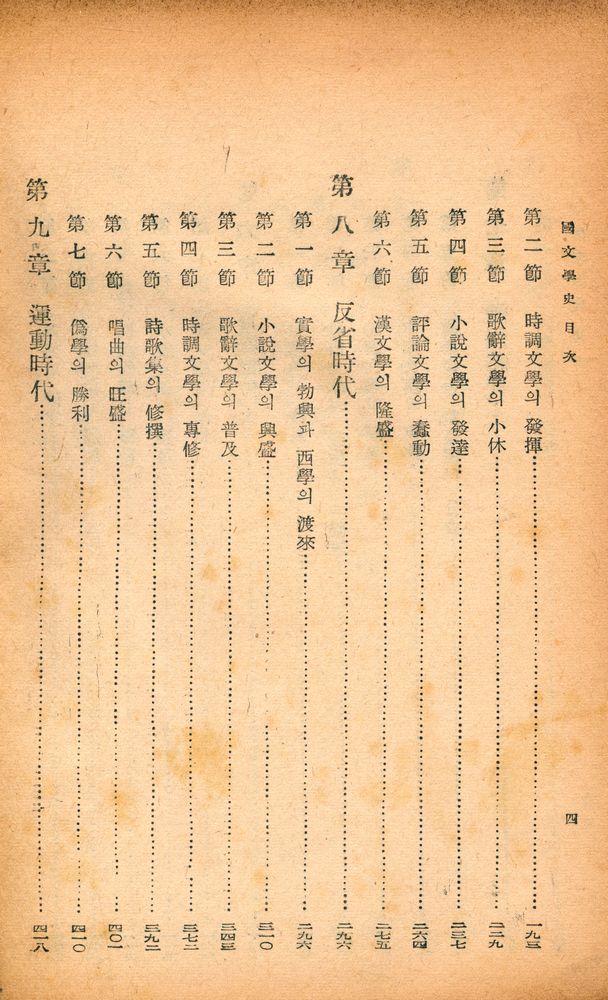 國文學史目次 四
第二節 時調文學의 發揮 一九三
第三節 歌辭文學의 小休 二二九
第四節 小說文學의 發達 二三七
第五節 評論文學의 蠢動 二六四
第六節 漢文學의 隆盛 二七五
第八章 反省時代 二九六
第一節 實學의 勃興과 西學의 渡來 二九六
第二節 小說文學의 興盛 三一〇
第三節 歌辭文學의 普及 三四三
第四節 時調文學의 專修 三七二
第五節 詩歌集의 修撰 三九二
第六節 唱曲의 旺盛 四〇一
第七節 僞學의 勝利 四一〇
第九章 運動時代 四一八